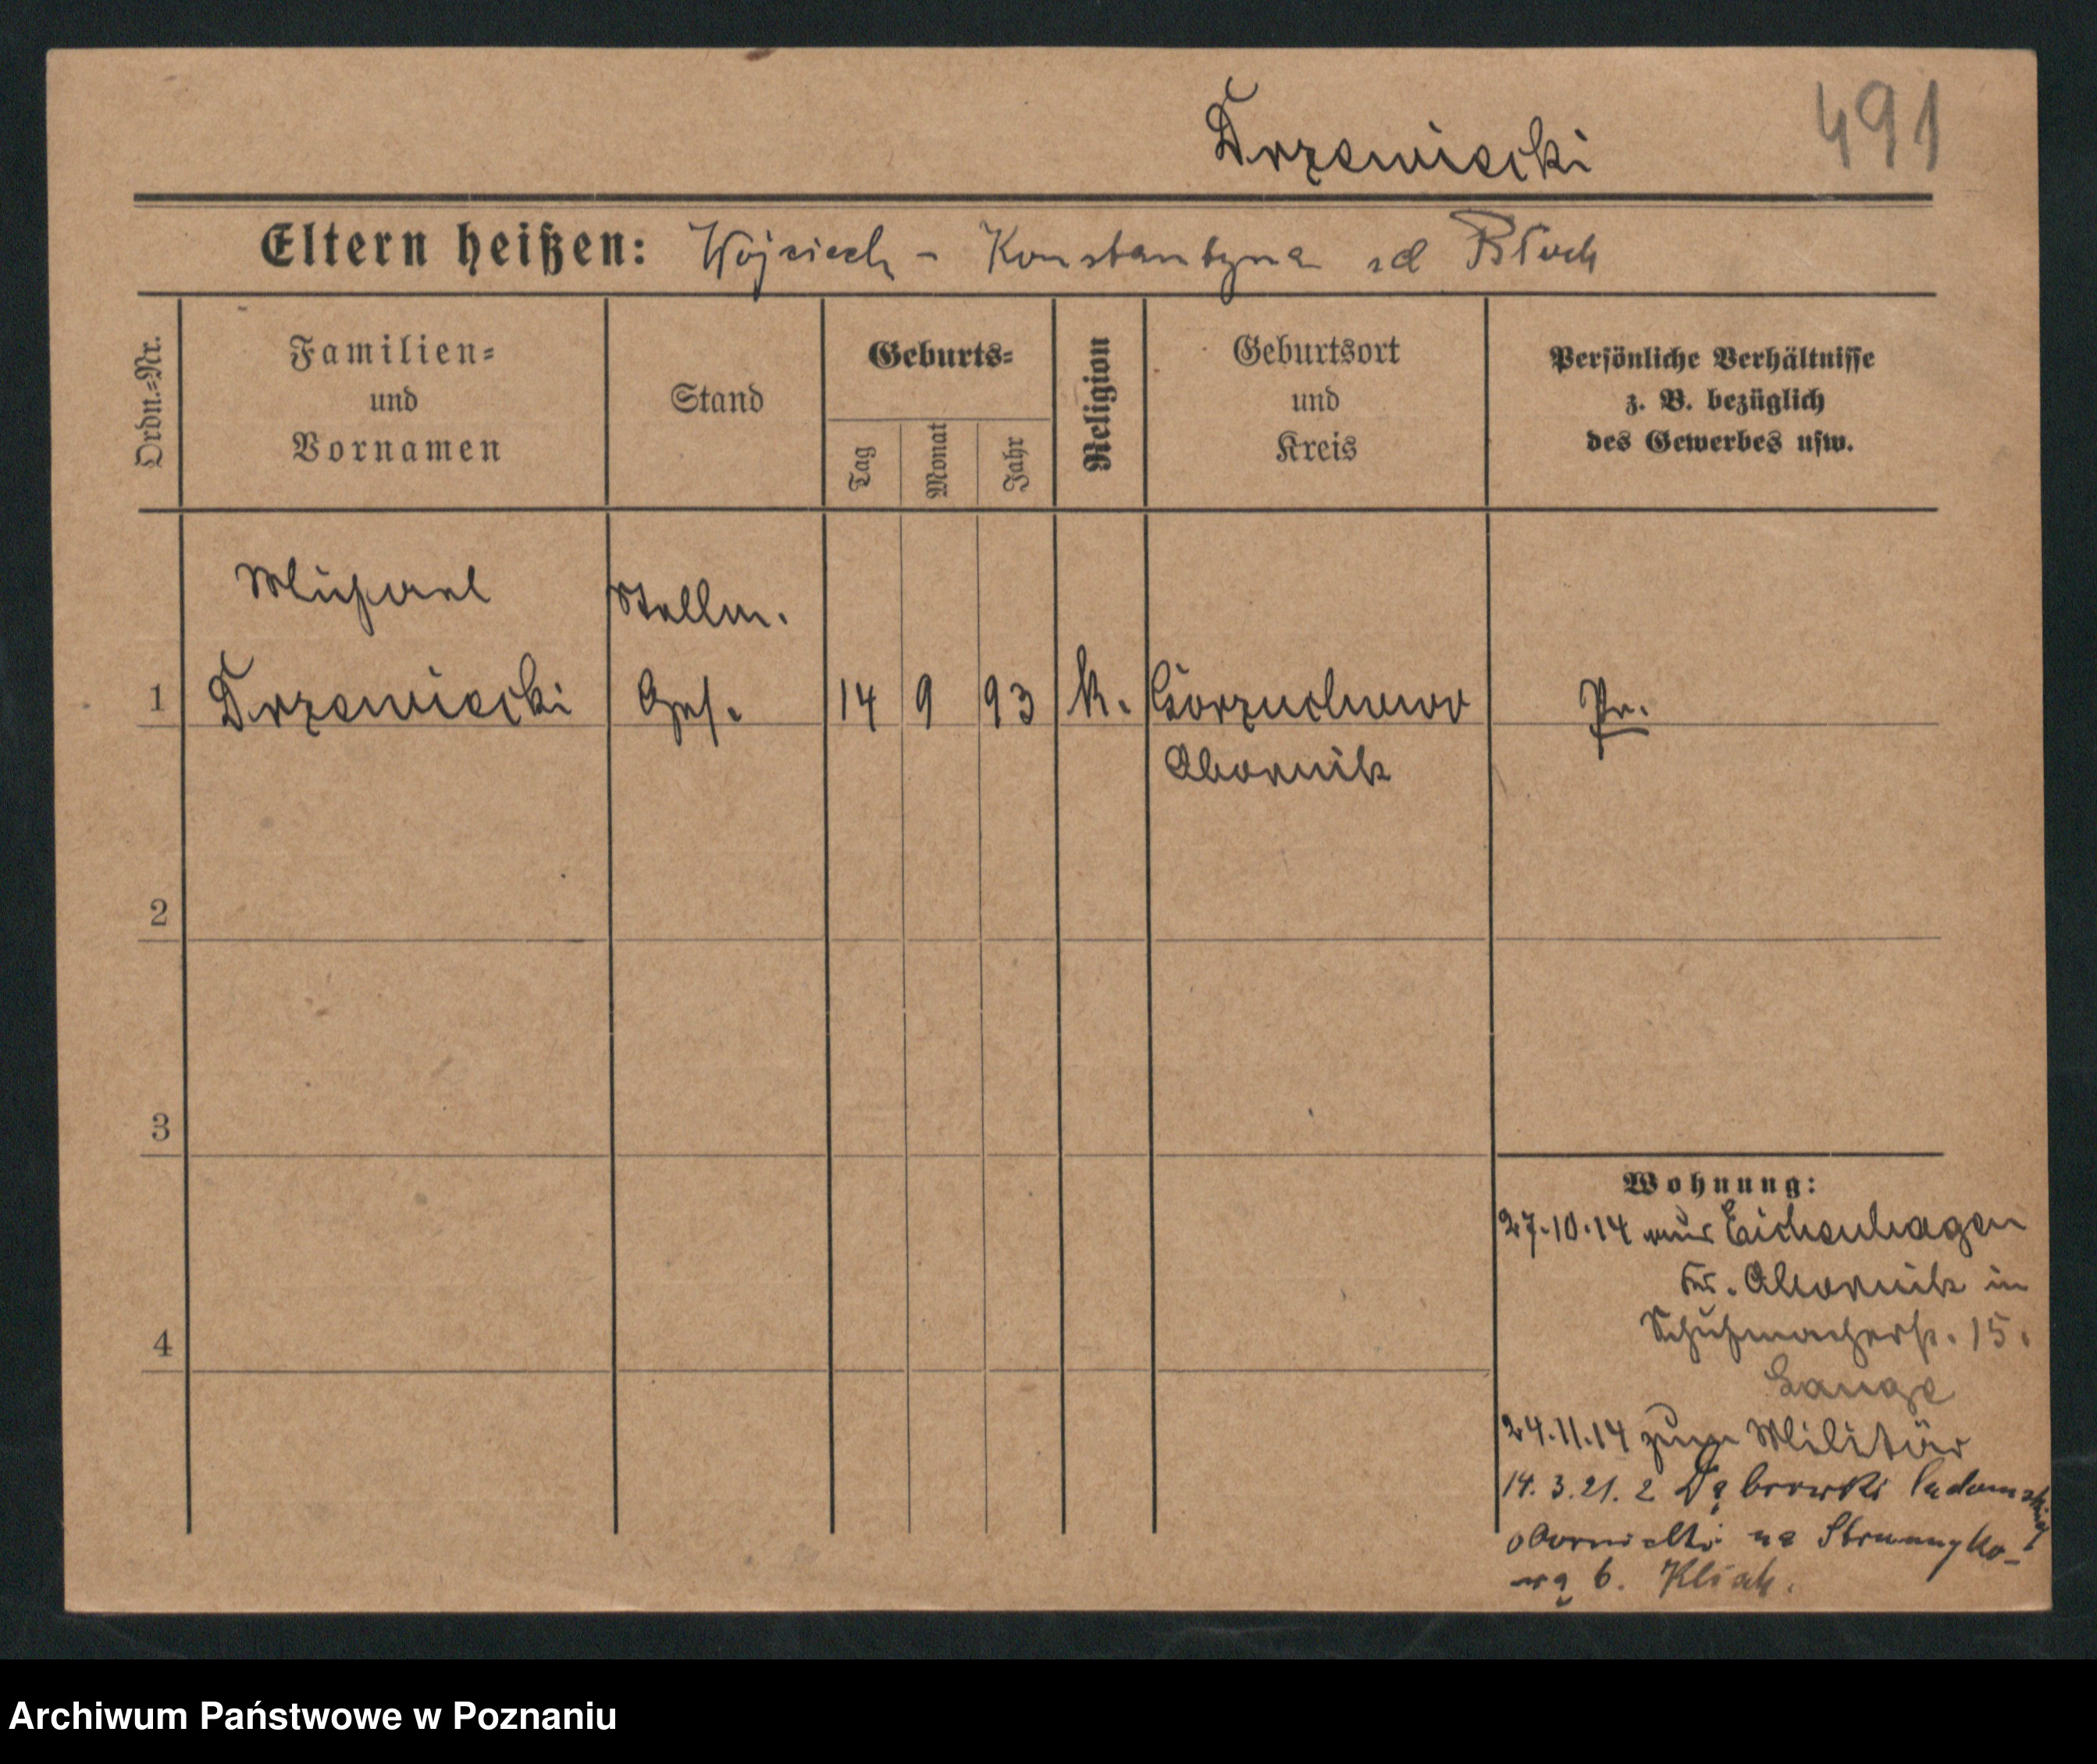 Drzewiecki
491
Eltern heißen: Wojciech - Konstantyna zd Ptoch
Ordn.-Nr.
Familien-
und
Vornamen
Stand
Geburts-
Tag
Monat
Jahr
Religion
Geburtsort
und
Kreis
Persönliche Verhältnisse
z. B. bezüglich
des Gewerbes usw.
Michael Stellm.
1 Drzewiecki Ges. 14 9 93 k. Gorzuchowo Pr.
Obornik
2
3
4
Wohnung:
27.10.14 aus Eichenhagen
Kr. Obornik in
Schuhmacherstr. 15.
Lange
24.11.14 zum Militär
14.3.21. z Dąbrowki ludomskiej
obornickti na Strumyko-
wą 6.